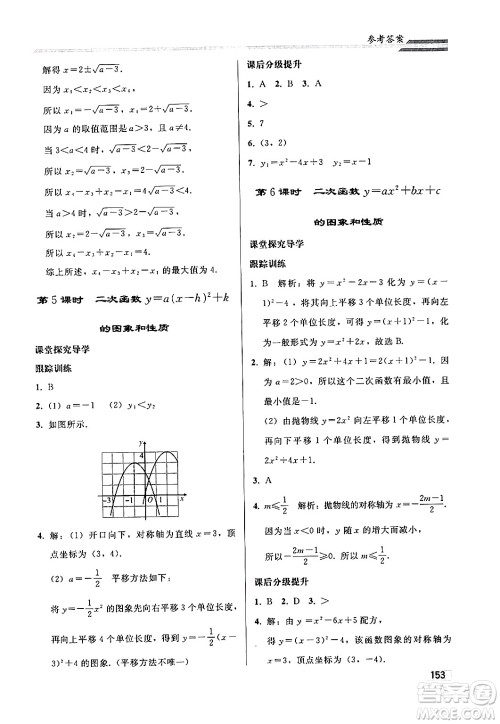 参考答案
解得 x=2±√a-3.
因为 x₁<x₂<x₃<x₄,
所以 x₁=1-√a-3,
因为 a 的取值范围是 a>3 且 a≠4.
当 3<a<4 时，√a-3<1,
所以 x₁>0.
所以 x₁-x₂²+x₃²+x₄<16.
当 a>4 时，√a-3>1,
所以 x₁<0.
所以 x₁-x₂²+x₃²+x₄=16.
综上所述，x₁-x₂²+x₃²+x₄ 的最大值为 16.
第 5 课时 二次函数 y=a(x-h)²+k
的图象和性质
课堂探究导学
跟踪训练
1. B
2. (1) a=-1 (2) y₁<y₂
3. 如图所示.
y
4
-3
-1
O
1
3
x
4. 解：(1) 开口向下，对称轴为直线 x=3，顶
点坐标为(3，4).
(2) a=-1/2 平移方法如下：
将 y=-1/2x² 的图象先向右平移 3 个单位长
度，再向上平移 4 个单位长度，得到 y=-1/2(x-
3)²+4 的图象.(平移方法不唯一)
课后分级提升
1. A 2. B 3. A
4. >
5. 7
6. (3，2)
7. y₁=x²-4x+3 y₂=x-1
第 6 课时 二次函数 y=ax²+bx+c
的图象和性质
课堂探究导学
跟踪训练
1. B 解析：将 y=x²-2x-3 化为 y=(x-
1)²-4，将其向上平移 3 个单位长度，再向
左平移 2 个单位长度后，可得 y=(x-1+
2)²-4+3，即 y=(x+1)²-1，故选 B.
2. 解：(1) y=x²+2x=(x+1)²-1,
因为 a=2>0，所以这个二次函数有最小值，且
最小值为-1.
(2) 由抛物线 y=x² 向左平移 1 个单位长度，
再向下平移 1 个单位长度得到.
3. A
4. m≤1/2 解析：抛物线的对称轴为 x=-2m-1/2,
因为当 x<0 时，y 随 x 的增大而减小，
所以-2m-1/2≥0，所以 m≤1/2.
课后分级提升
1. B 2. D 3. A
4. 解：(1) 将 y=x²-6x+5 配方，
得 y=(x-3)²-4，该函数图象的对称轴为
x=3，顶点坐标为(3，-4).
153